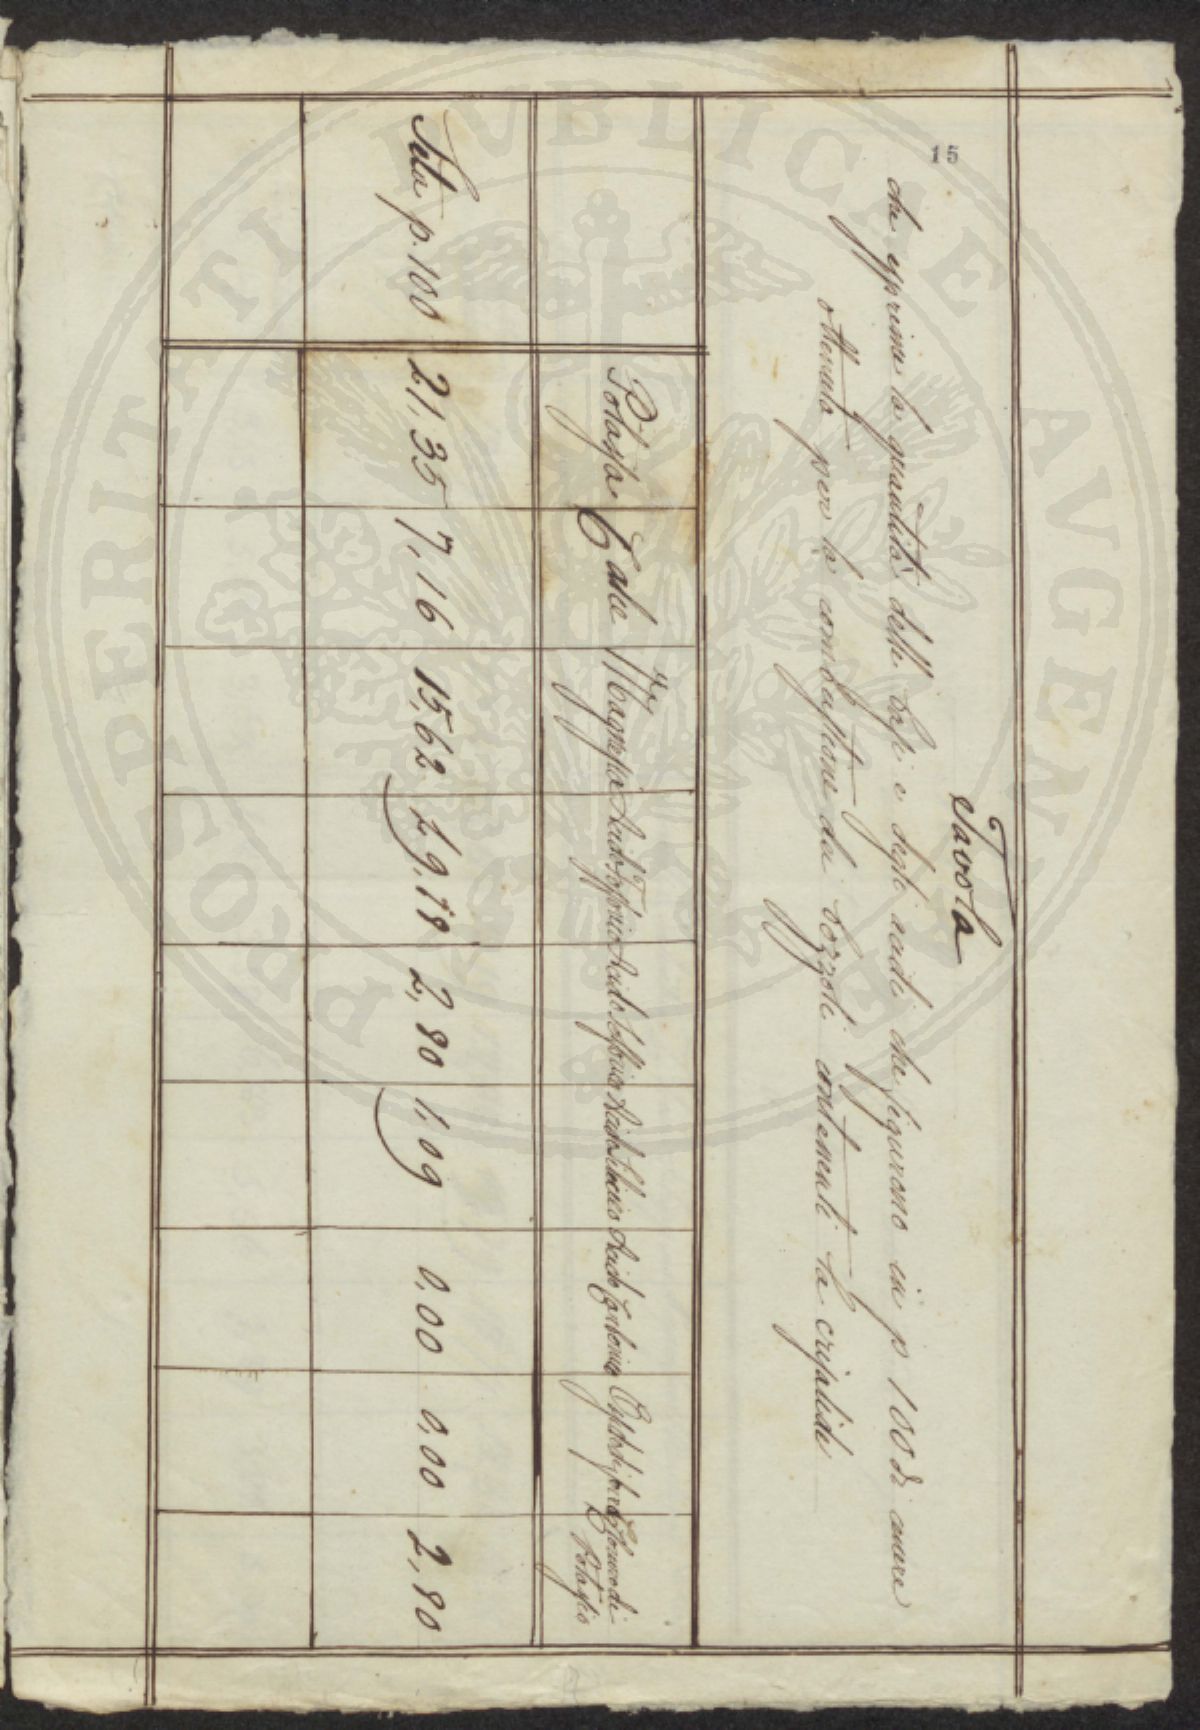 15
Tavola
che esprime la quantità delle basi e degli acidi che figurano in p 100 di cenere
ottenuta per la combustione da bozzoli contenenti la crisalide
Potassa Calce Magnesia Acido fosforico Acido solforico Acido silicico Acido Carbonico Ossido di ferro Cloruro di
Potassio
Seta p. 100 21,35 7,16 15,62 29,18 2,80 1,09 0,00 0,00 2,80
PROSPERITATI PVBLICAE AVGENDAE